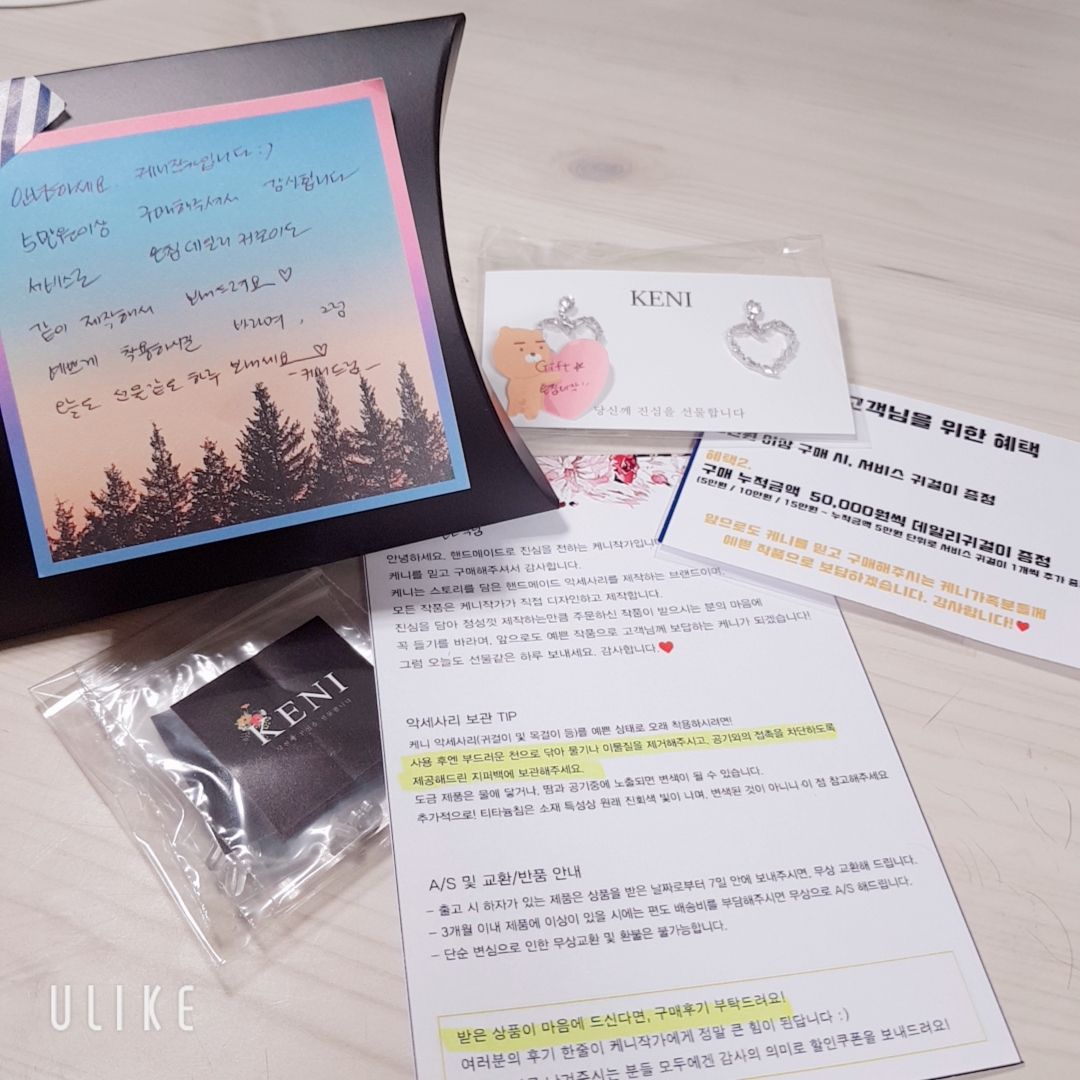 안녕하세요. 케니작가입니다 :)
5만원이상 구매해주셔서 감사합니다
서비스로 데일리 귀걸이도
같이 제작해서 보내드려요 ♡
예쁘게 착용하시길 바라며, 그럼
오늘도 선물같은 하루 보내세요 ♡
-케니드림-
KENI
Gift
당신께 진심을 선물합니다
고객님을 위한 혜택
이상 구매 시, 서비스 귀걸이 증정
혜택2.
구매 누적금액 50,000원씩 데일리귀걸이 증정
(5만원 / 10만원 / 15만원 - 누적금액 5만원 단위로 서비스 귀걸이 1개씩 추가 증
앞으로도 케니를 믿고 구매해주시는 케니가족분들께
예쁜 작품으로 보답하겠습니다. 감사합니다!❤
안녕하세요. 핸드메이드로 진심을 전하는 케니작가입니
케니를 믿고 구매해주셔서 감사합니다.
케니는 스토리를 담은 핸드메이드 악세사리를 제작하는 브랜드이며,
모든 작품은 케니작가가 직접 디자인하고 제작합니다.
진심을 담아 정성껏 제작하는만큼 주문하신 작품이 받으시는 분의 마음에
꼭 들기를 바라며, 앞으로도 예쁜 작품으로 고객님께 보답하는 케니가 되겠습니다!
그럼 오늘도 선물같은 하루 보내세요. 감사합니다.❤
KENI
악세사리 보관 TIP
케니 악세사리(귀걸이 및 목걸이 등)를 예쁜 상태로 오래 착용하시려면!
사용 후엔 부드러운 천으로 닦아 물기나 이물질을 제거해주시고, 공기와의 접촉을 차단하도록
제공해드린 지퍼백에 보관해주세요.
도금 제품은 물에 닿거나, 땀과 공기중에 노출되면 변색이 될 수 있습니다.
추가적으로! 티타늄침은 소재 특성상 원래 진회색 빛이 나며, 변색된 것이 아니니 이 점 참고해주세요
A/S 및 교환/반품 안내
- 출고 시 하자가 있는 제품은 상품을 받은 날짜로부터 7일 안에 보내주시면, 무상 교환해 드립니다.
- 3개월 이내 제품에 이상이 있을 시에는 편도 배송비를 부담해주시면 무상으로 A/S 해드립니다.
- 단순 변심으로 인한 무상교환 및 환불은 불가능합니다.
받은 상품이 마음에 드신다면, 구매후기 부탁드려요!
여러분의 후기 한줄이 케니작가에게 정말 큰 힘이 된답니다 :)
남겨주시는 분들 모두에겐 감사의 의미로 할인쿠폰을 보내드려요!
ULIKE